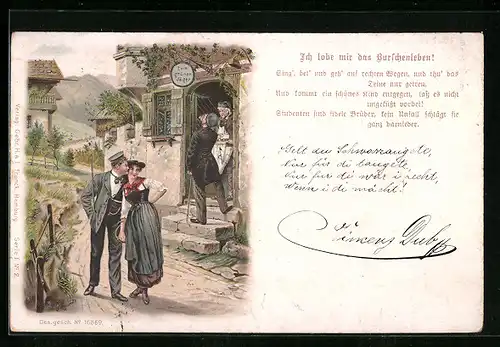 Ich lobe mir das Burschenleben!
Sing', bet' und geh' auf rechten Wegen, und thu' das
Deine nur getreu.
Und kommt ein schönes Kind entgegen, laß es nicht
ungeküßt vorbei!
Studenten sind fidele Brüder, kein Unfall schlägt sie
ganz darnieder.
Gelt du Schwarzaugete,
Für di war i recht,
Wenn i di möcht!
Zum
grünen
Jäger
Verlag Gebr. H. & J. Spiro, Hamburg. Serie I No. 2
Ges. gesch. No. 16869.